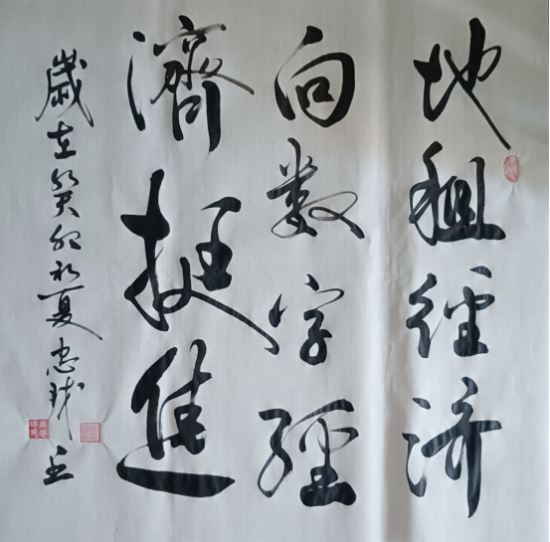 地租經济
向数字經
濟挺進
歲在癸卯初夏忠球书